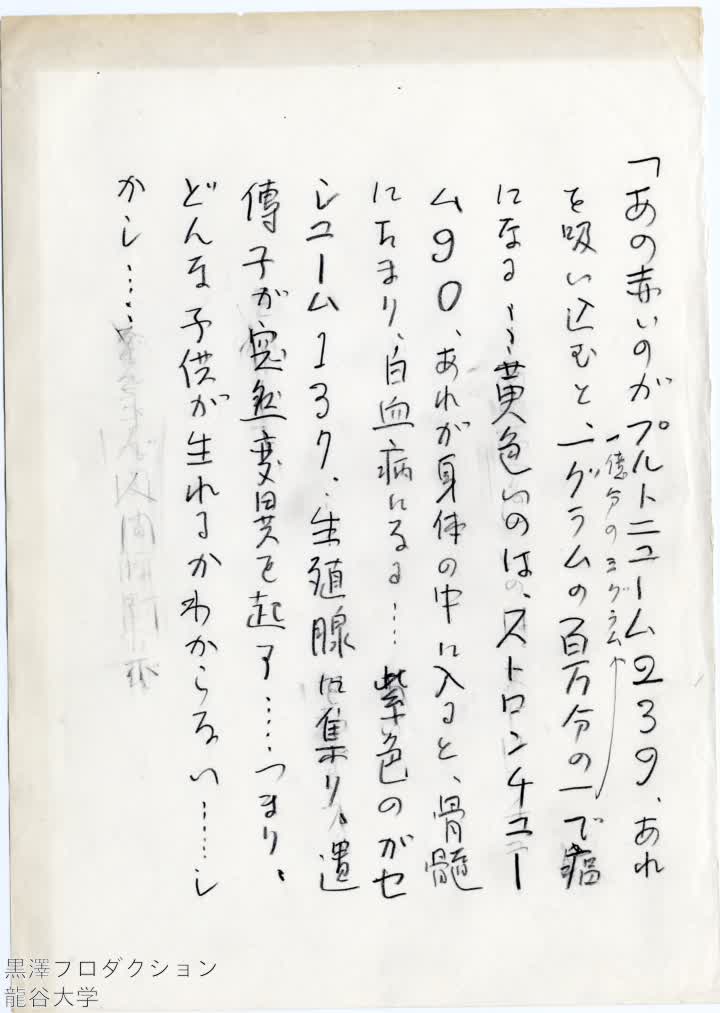 「あの赤いのがプルトニューム239、あれ
を吸い込むと一グラムの百万分の一で癌
一億分の3グラム
になる……黄色いのは、ストロンチュー
ム90、あれが身体の中に入ると、骨髄
にたまり、白血病になる……紫色のがセ
シューム137、生殖腺に集り、遺
傳子が突然変異を起す……つまり、
どんな子供が生れるかわからない……し
かし……
黒澤プロダクション
龍谷大学